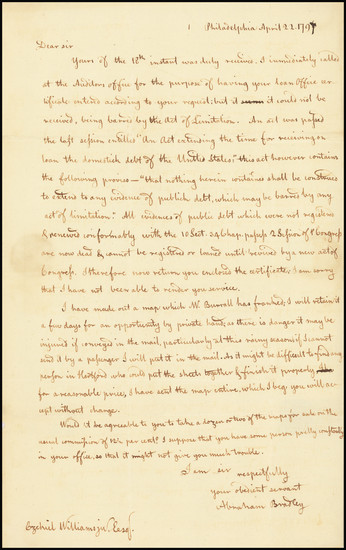 Philadelphia April 22. 179
Dear sir
Yours of the 18th instant was duly receivd. I immediately called
at the Auditors office for the purpose of having your Loan Office cer-
tificate entered according to your request; but it could not be
received, being barred by the Act of Limitation. An act was passed
the last session entitled "An Act extending the time for receiving on
loan the domestick debt of the United States;" this act however contains
the following proviso— "that nothing herein contained shall be construed
to extend to any evidence of publick debt, which may be barred by any
act of limitation." All evidences of public debt which were not registered
& renewed conformably with the 10 Sect. 24 Chap. 2d Congress
are now dead & cannot be registered or loaned until revived by a new act of
Congress. I therefore now return you enclosed the certificates I am sorry
that I have not been able to render you service.
I have made out a map which Mr. Burrall has franked; I will retain it
a few days for an opportunity by private hand, as there is danger it may be
injured if conveyed in the mail, particularly at this season if I cannot
send it by a passenger I will put it in the mail. As it might be difficult to find any
person in Hartford who could put the sheets together & finish it properly
for a reasonable price, I have sent the map entire, which I beg you will ac-
cept without change.
Would it be agreeable to you to take a dozen others of the maps for sale on the
usual commission of 12½ per cent? I suppose that you have some person constantly
in your office, so that it might not give you much trouble.
I am sir respectfully
your obedient servant
Abraham Bradley
Ezekiel Williams jr. Esq.